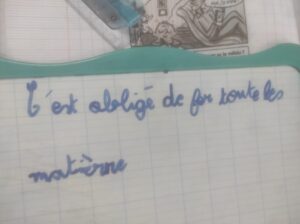 C'est obligé de for toute les
matièrne